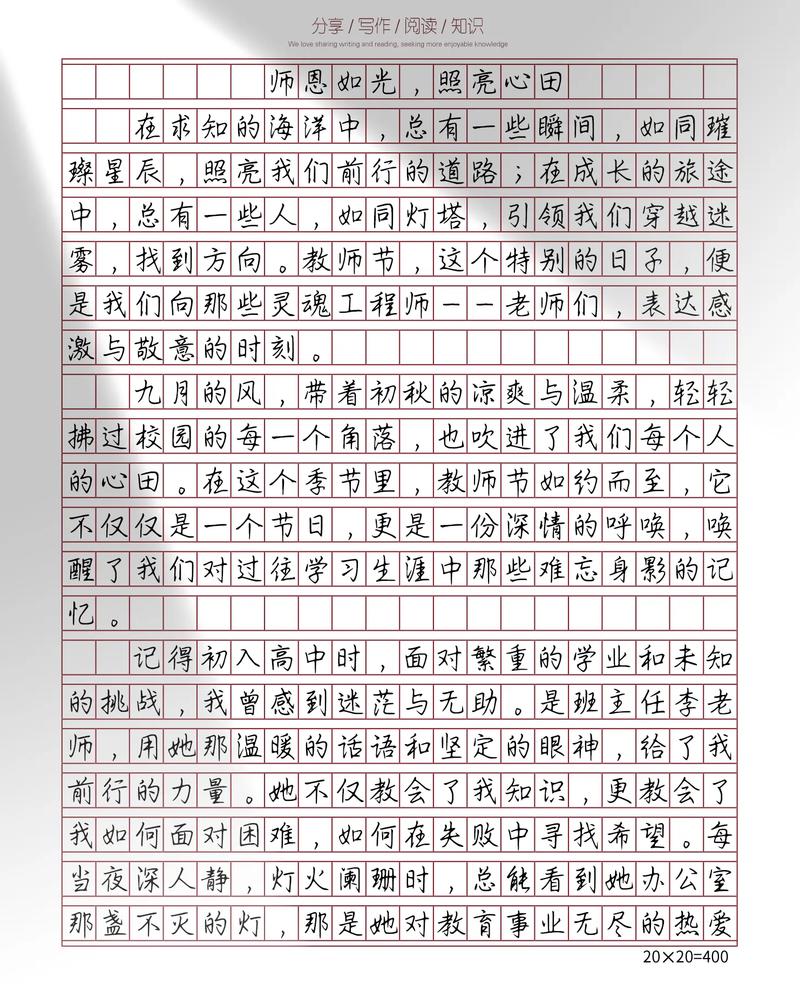 分享/写作/阅读/知识
We love sharing writing and reading, seeking more enjoyable knowledge
师恩如光，照亮心田
在求知的海洋中，总有一些瞬间，如同璀
璨星辰，照亮我们前行的道路；在成长的旅途
中，总有一些人，如同灯塔，引领我们穿越迷
雾，找到方向。教师节，这个特别的日子，便
是我们向那些灵魂工程师——老师们，表达感
激与敬意的时刻。
九月的风，带着初秋的凉爽与温柔，轻轻
拂过校园的每一个角落，也吹进了我们每个人
的心田。在这个季节里，教师节如约而至，它
不仅仅是一个节日，更是一份深情的呼唤，唤
醒了我们对过往学习生涯中那些难忘身影的记
忆。
记得初入高中时，面对繁重的学业和未知
的挑战，我曾感到迷茫与无助。是班主任李老
师，用她那温暖的话语和坚定的眼神，给了我
前行的力量。她不仅教会了我知识，更教会了
我如何面对困难，如何在失败中寻找希望。每
当夜深人静，灯火阑珊时，总能看到她办公室
那盏不灭的灯，那是她对教育事业无尽的热爱
20×20=400